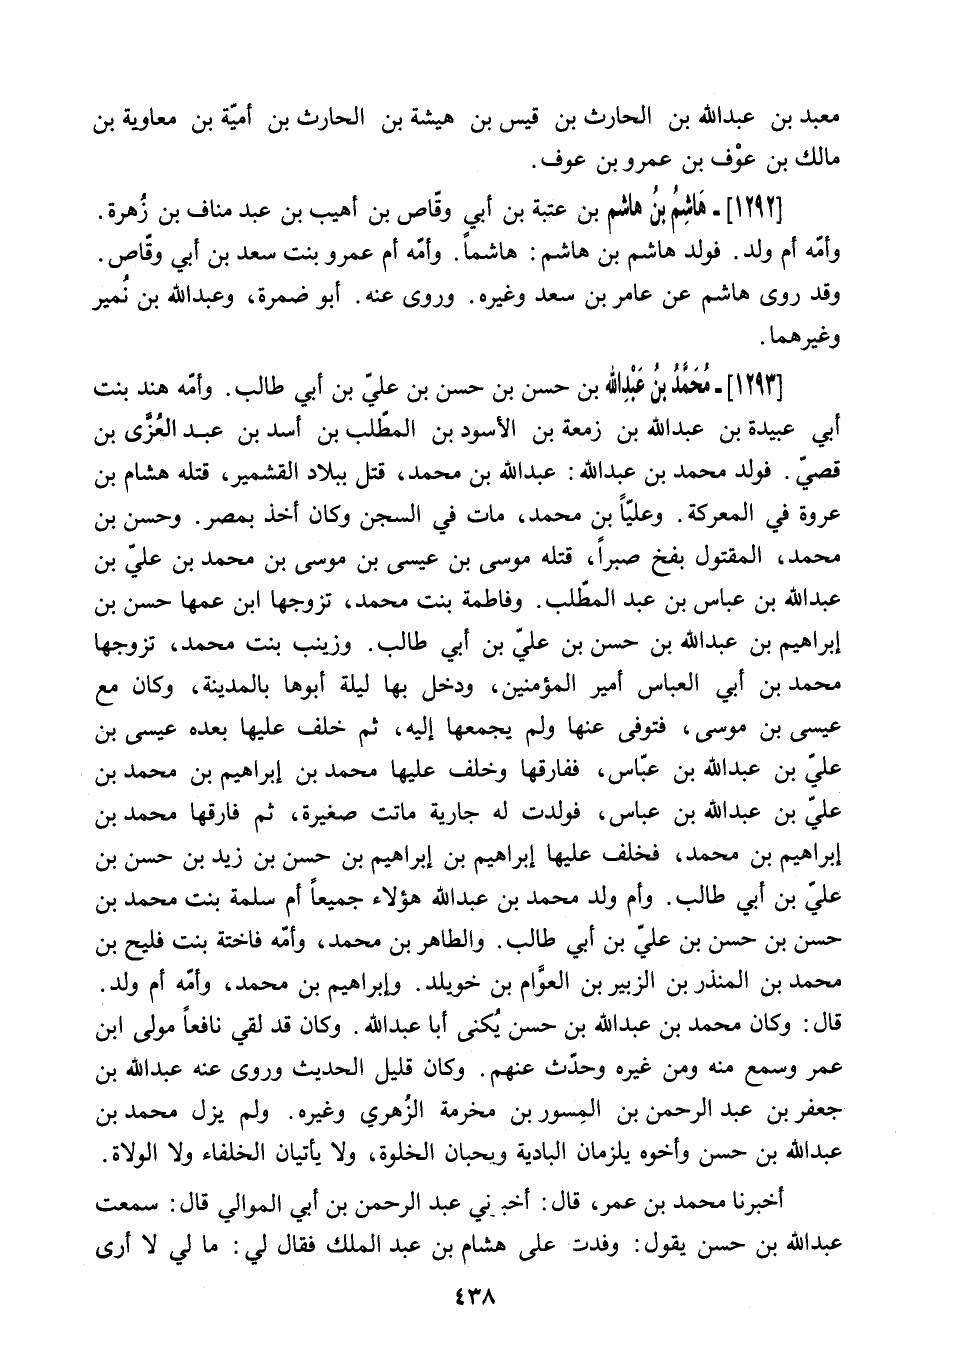 معبد بن عبدالله بن الحارث بن قيس بن هيشة بن الحارث بن أميّة بن معاوية بن
مالك بن عوْف بن عمرو بن عوف.
[١٢٩٢] ـ هَاشِمُ بنُ هاشم بن عتبة بن أبي وقّاص بن أهيب بن عبد مناف بن زُهرة.
وأمّه أم ولد. فولد هاشم بن هاشم: هاشماً. وأمّه أم عمرو بنت سعد بن أبي وقّاص.
وقد روى هاشم عن عامر بن سعد وغيره. وروى عنه. أبو ضمرة، وعبدالله بن نُمير
وغيرهما.
[١٢٩٣] ـ مُحَمَّدُ بنُ عَبْدِالله بن حسن بن حسن بن عليّ بن أبي طالب. وأمّه هند بنت
أبي عبيدة بن عبدالله بن زمعة بن الأسود بن المطّلب بن أسد بن عبد العُزَّى بن
قصيّ. فولد محمد بن عبدالله: عبدالله بن محمد، قتل ببلاد القشمير، قتله هشام بن
عروة في المعركة. وعليّاً بن محمد، مات في السجن وكان أخذ بمصر. وحسن بن
محمد، المقتول بفخ صبراً، قتله موسى بن عيسى بن موسى بن محمد بن عليّ بن
عبدالله بن عباس بن عبد المطّلب. وفاطمة بنت محمد، تزوجها ابن عمها حسن بن
إبراهيم بن عبدالله بن حسن بن عليّ بن أبي طالب. وزينب بنت محمد، تزوجها
محمد بن أبي العباس أمير المؤمنين، ودخل بها ليلة أبوها بالمدينة، وكان مع
عيسى بن موسى، فتوفى عنها ولم يجمعها إليه، ثم خلف عليها بعده عيسى بن
عليّ بن عبدالله بن عبّاس، ففارقها وخلف عليها محمد بن إبراهيم بن محمد بن
عليّ بن عبدالله بن عباس، فولدت له جارية ماتت صغيرة، ثم فارقها محمد بن
إبراهيم بن محمد، فخلف عليها إبراهيم بن إبراهيم بن حسن بن زيد بن حسن بن
عليّ بن أبي طالب. وأم ولد محمد بن عبدالله هؤلاء جميعاً أم سلمة بنت محمد بن
حسن بن حسن بن عليّ بن أبي طالب. والطاهر بن محمد، وأمّه فاختة بنت فليح بن
محمد بن المنذر بن الزبير بن العوَّام بن خويلد. وإبراهيم بن محمد، وأمّه أم ولد.
قال: وكان محمد بن عبدالله بن حسن يُكنى أبا عبدالله. وكان قد لقي نافعاً مولى ابن
عمر وسمع منه ومن غيره وحدّث عنهم. وكان قليل الحديث وروى عنه عبدالله بن
جعفر بن عبد الرحمن بن المِسور بن مخرمة الزُهري وغيره. ولم يزل محمد بن
عبدالله بن حسن وأخوه يلزمان البادية ويحبان الخلوة، ولا يأتيان الخلفاء ولا الولاة.
أخبرنا محمد بن عمر، قال: أخبرني عبد الرحمن بن أبي الموالي قال: سمعت
عبدالله بن حسن يقول: وفدت على هشام بن عبد الملك فقال لي: ما لي لا أرى
٤٣٨